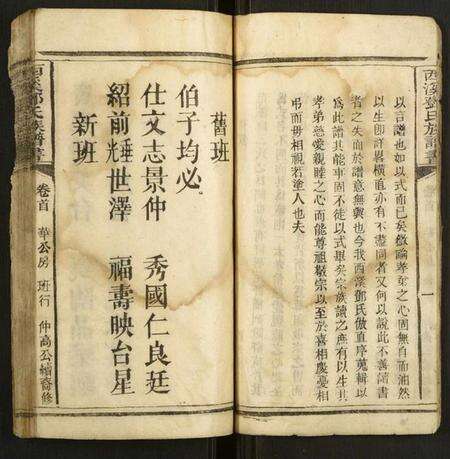 西溪鄧氏族譜書
以言譜也如以式而已矣敬諭孝友之心固無自而油然
以生卽詳畧橫直亦有不盡同者又何以說此不善譜書
者之失而於譜意無與也今我西溪鄧氏倣直序蒐輯以
為此譜其能率固不徒以式畢矣宗族讀之庶有以生其
孝弟慈愛親睦之心而能尊祖敬宗以至於喜相慶憂相
弔而毋相視若塗人也夫
舊班
伯子均必
仕文志景仲 秀國仁良廷
紹前光世澤 福壽映台星
新班
西溪鄧氏族譜書
卷首 華公房 班行 仲高公續裔修